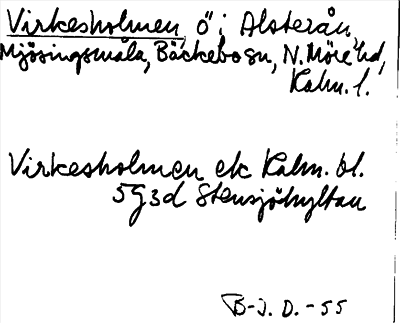 Virkesholmen, ö i Alsterån,
Mjösingsmåla, Bäckebo sn, N. Möre hd,
Kalm. l.
Virkesholmen ek Kalm. bl.
5G3d Stensjöhyltan
B-J. D. -55